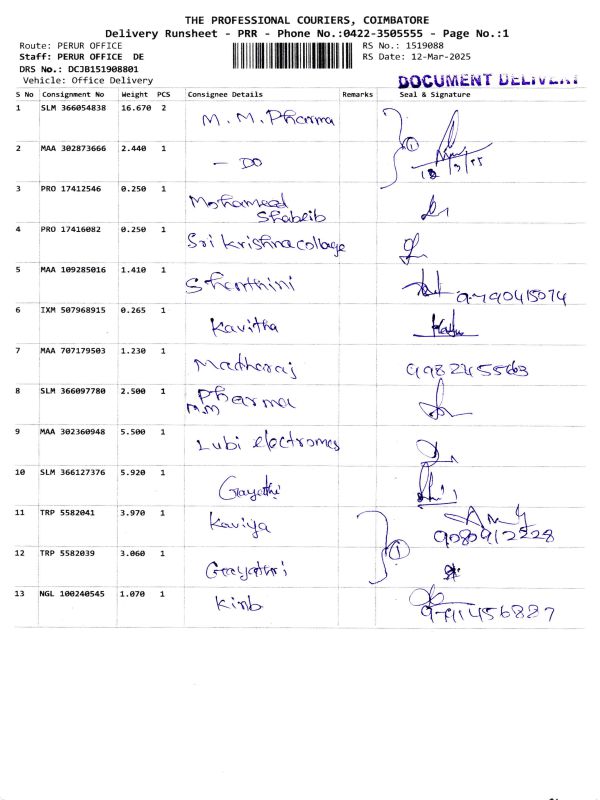 THE PROFESSIONAL COURIERS, COIMBATORE
Delivery Runsheet - PRR - Phone No.:0422-3505555 - Page No.:1
Route: PERUR OFFICE
RS No.: 1519088
Staff: PERUR OFFICE DE
RS Date: 12-Mar-2025
DRS No.: DCJB151908801
Vehicle: Office Delivery
DOCUMENT DELIVERY
S No Consignment No Weight PCS Consignee Details Remarks Seal & Signature
1 SLM 366054838 16.670 2 M. M. Pharma
2 MAA 302873666 2.440 1 - DO
3 PRO 17412546 0.250 1 Mohameed Shabeib
4 PRO 17416082 0.250 1 Sri Krishna collage
5 MAA 109285016 1.410 1 Shenthini 9790415074
6 IXM 507968915 0.265 1 Kavitha
7 MAA 707179503 1.230 1 Matheraj
8 SLM 366097780 2.500 1 Pharma MM
9 MAA 302360948 5.500 1 Lubi electromes
10 SLM 366127376 5.920 1 Gayathi
11 TRP 5582041 3.970 1 Kaviya 9080912228
12 TRP 5582039 3.060 1 Gayatari
13 NGL 100240545 1.070 1 Kinb 9711456887